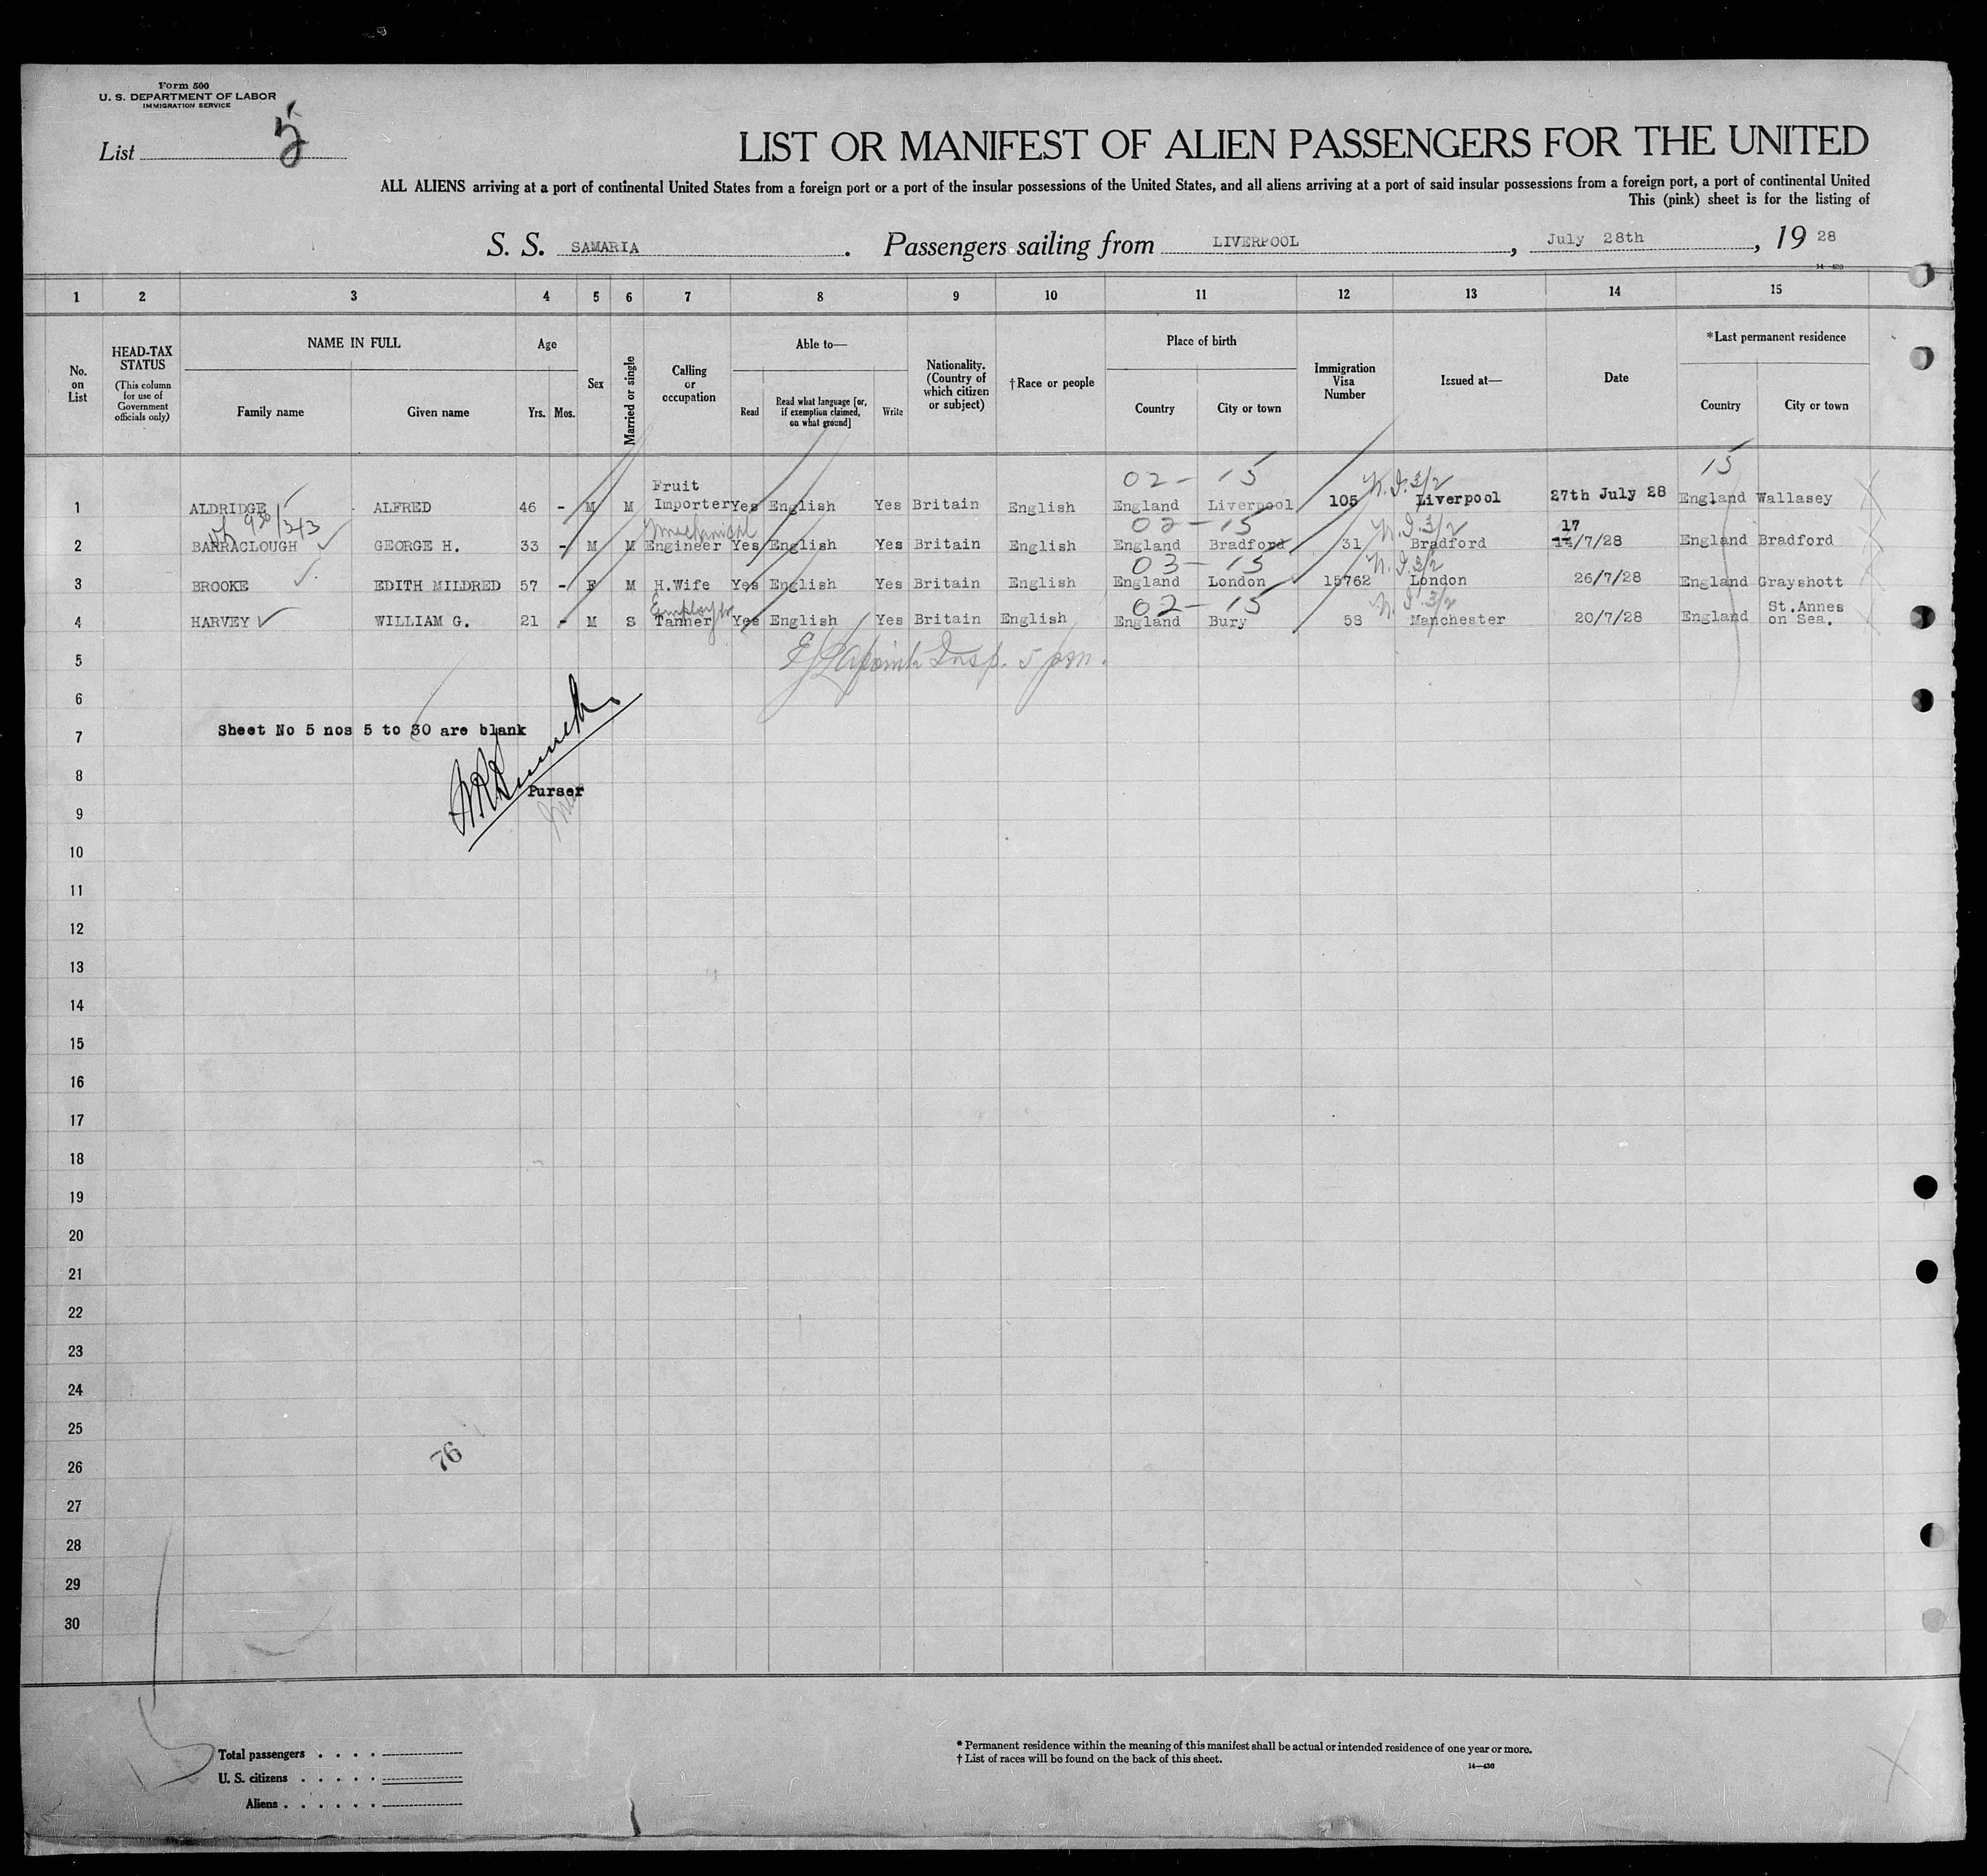 Form 500
U. S. DEPARTMENT OF LABOR
IMMIGRATION SERVICE
List 5
LIST OR MANIFEST OF ALIEN PASSENGERS FOR THE UNITED
ALL ALIENS arriving at a port of continental United States from a foreign port or a port of the insular possessions of the United States, and all aliens arriving at a port of said insular possessions from a foreign port, a port of continental United
This (pink) sheet is for the listing of
S. S. SAMARIA. Passengers sailing from LIVERPOOL, July 28th, 19 28
14—430
1 2 3 4 5 6 7 8 9 10 11 12 13 14 15
No. on List
HEAD-TAX STATUS (This column for use of Government officials only)
NAME IN FULL
Family name Given name
Age
Yrs. Mos.
Sex
Married or single
Calling or occupation
Able to—
Read
Read what language [or, if exemption claimed, on what ground]
Write
Nationality. (Country of which citizen or subject)
†Race or people
Place of birth
Country City or town
Immigration Visa Number
Issued at—
Date
*Last permanent residence
Country City or town
02 - 15 N.I. 3/2 15
1 ALDRIDGE ALFRED 46 - M M Fruit Importer Yes English Yes Britain English England Liverpool 105 Liverpool 27th July 28 England Wallasey
Mechanical 02 - 15 N.I. 3/2 17
2 BARRACLOUGH GEORGE H. 33 - M M Engineer Yes English Yes Britain English England Bradford 31 Bradford 14/7/28 England Bradford
03 - 15 N.I. 3/2
3 BROOKE EDITH MILDRED 57 - F M H.Wife Yes English Yes Britain English England London 15762 London 26/7/28 England Grayshott
02 - 15 N.I. 3/2
4 HARVEY WILLIAM G. 21 - M S Tanner Yes English Yes Britain English England Bury 58 Manchester 20/7/28 England St.Annes on Sea.
5 Insp. 5 pm.
6
7 Sheet No 5 nos 5 to 30 are blank
8
Purser
9
10
11
12
13
14
15
16
17
18
19
20
21
22
23
24
25
76
26
27
28
29
30
Total passengers . . . .
U. S. citizens . . . . .
Aliens . . . . . .
* Permanent residence within the meaning of this manifest shall be actual or intended residence of one year or more.
† List of races will be found on the back of this sheet.
14—430